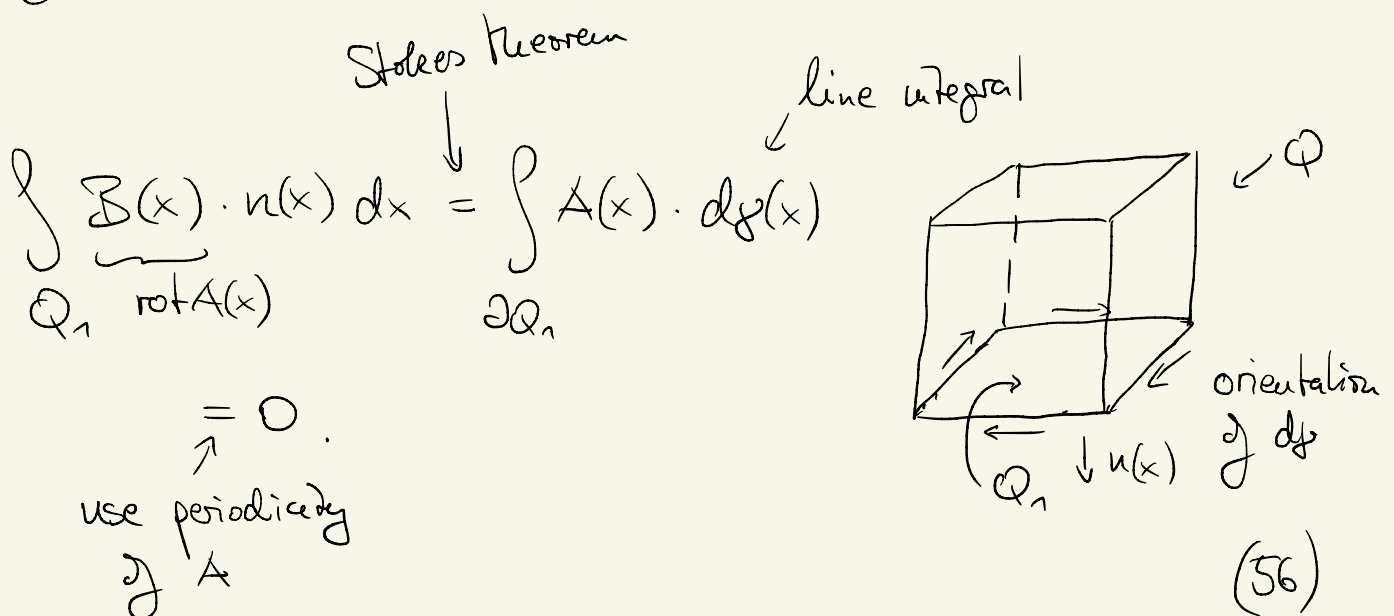 Stokes theorem
line integral
∫ B(x) · n(x) dx = ∫ A(x) · dγ(x)
Q₁ rot A(x) ∂Q₁
Q
= 0.
use periodicity
of A
orientation
of dγ
Q₁
n(x)
(56)